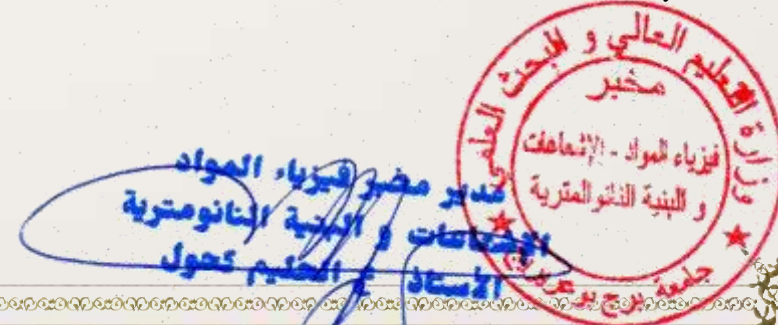 وزارة التعليم العالي و البحث العلمي
مخبر
فيزياء المواد - الإشعاعات
و البنية النانوالمترية
جامعة برج بوعريريج
مدير مخبر فيزياء المواد
الإشعاعات و البنية النانومترية
الأستاذ ع الحليم تحول